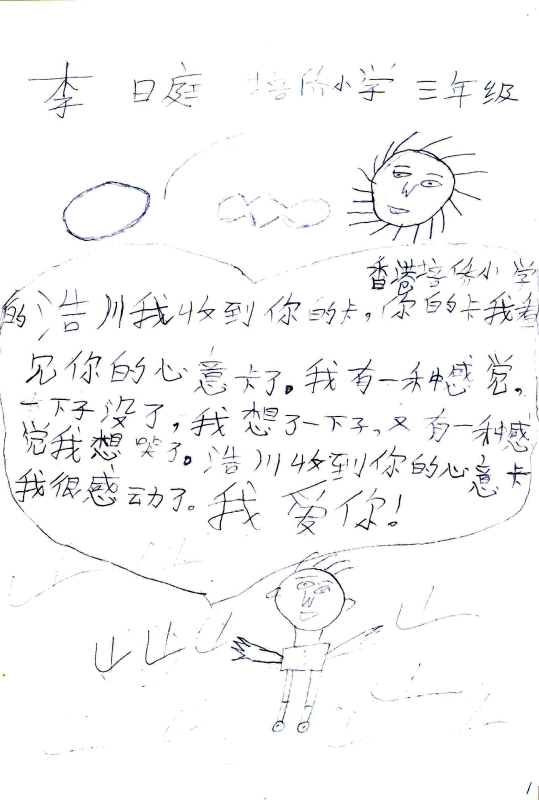 李日庭 培侨小学 三年级
香港培侨小学
的浩川我收到你的卡，你的卡我看
见你的心意卡了。我有一种感觉。
一下子没了，我想了一下子，又有一种感
觉我想哭了。浩川收到你的心意卡
我很感动了。我爱你！
1